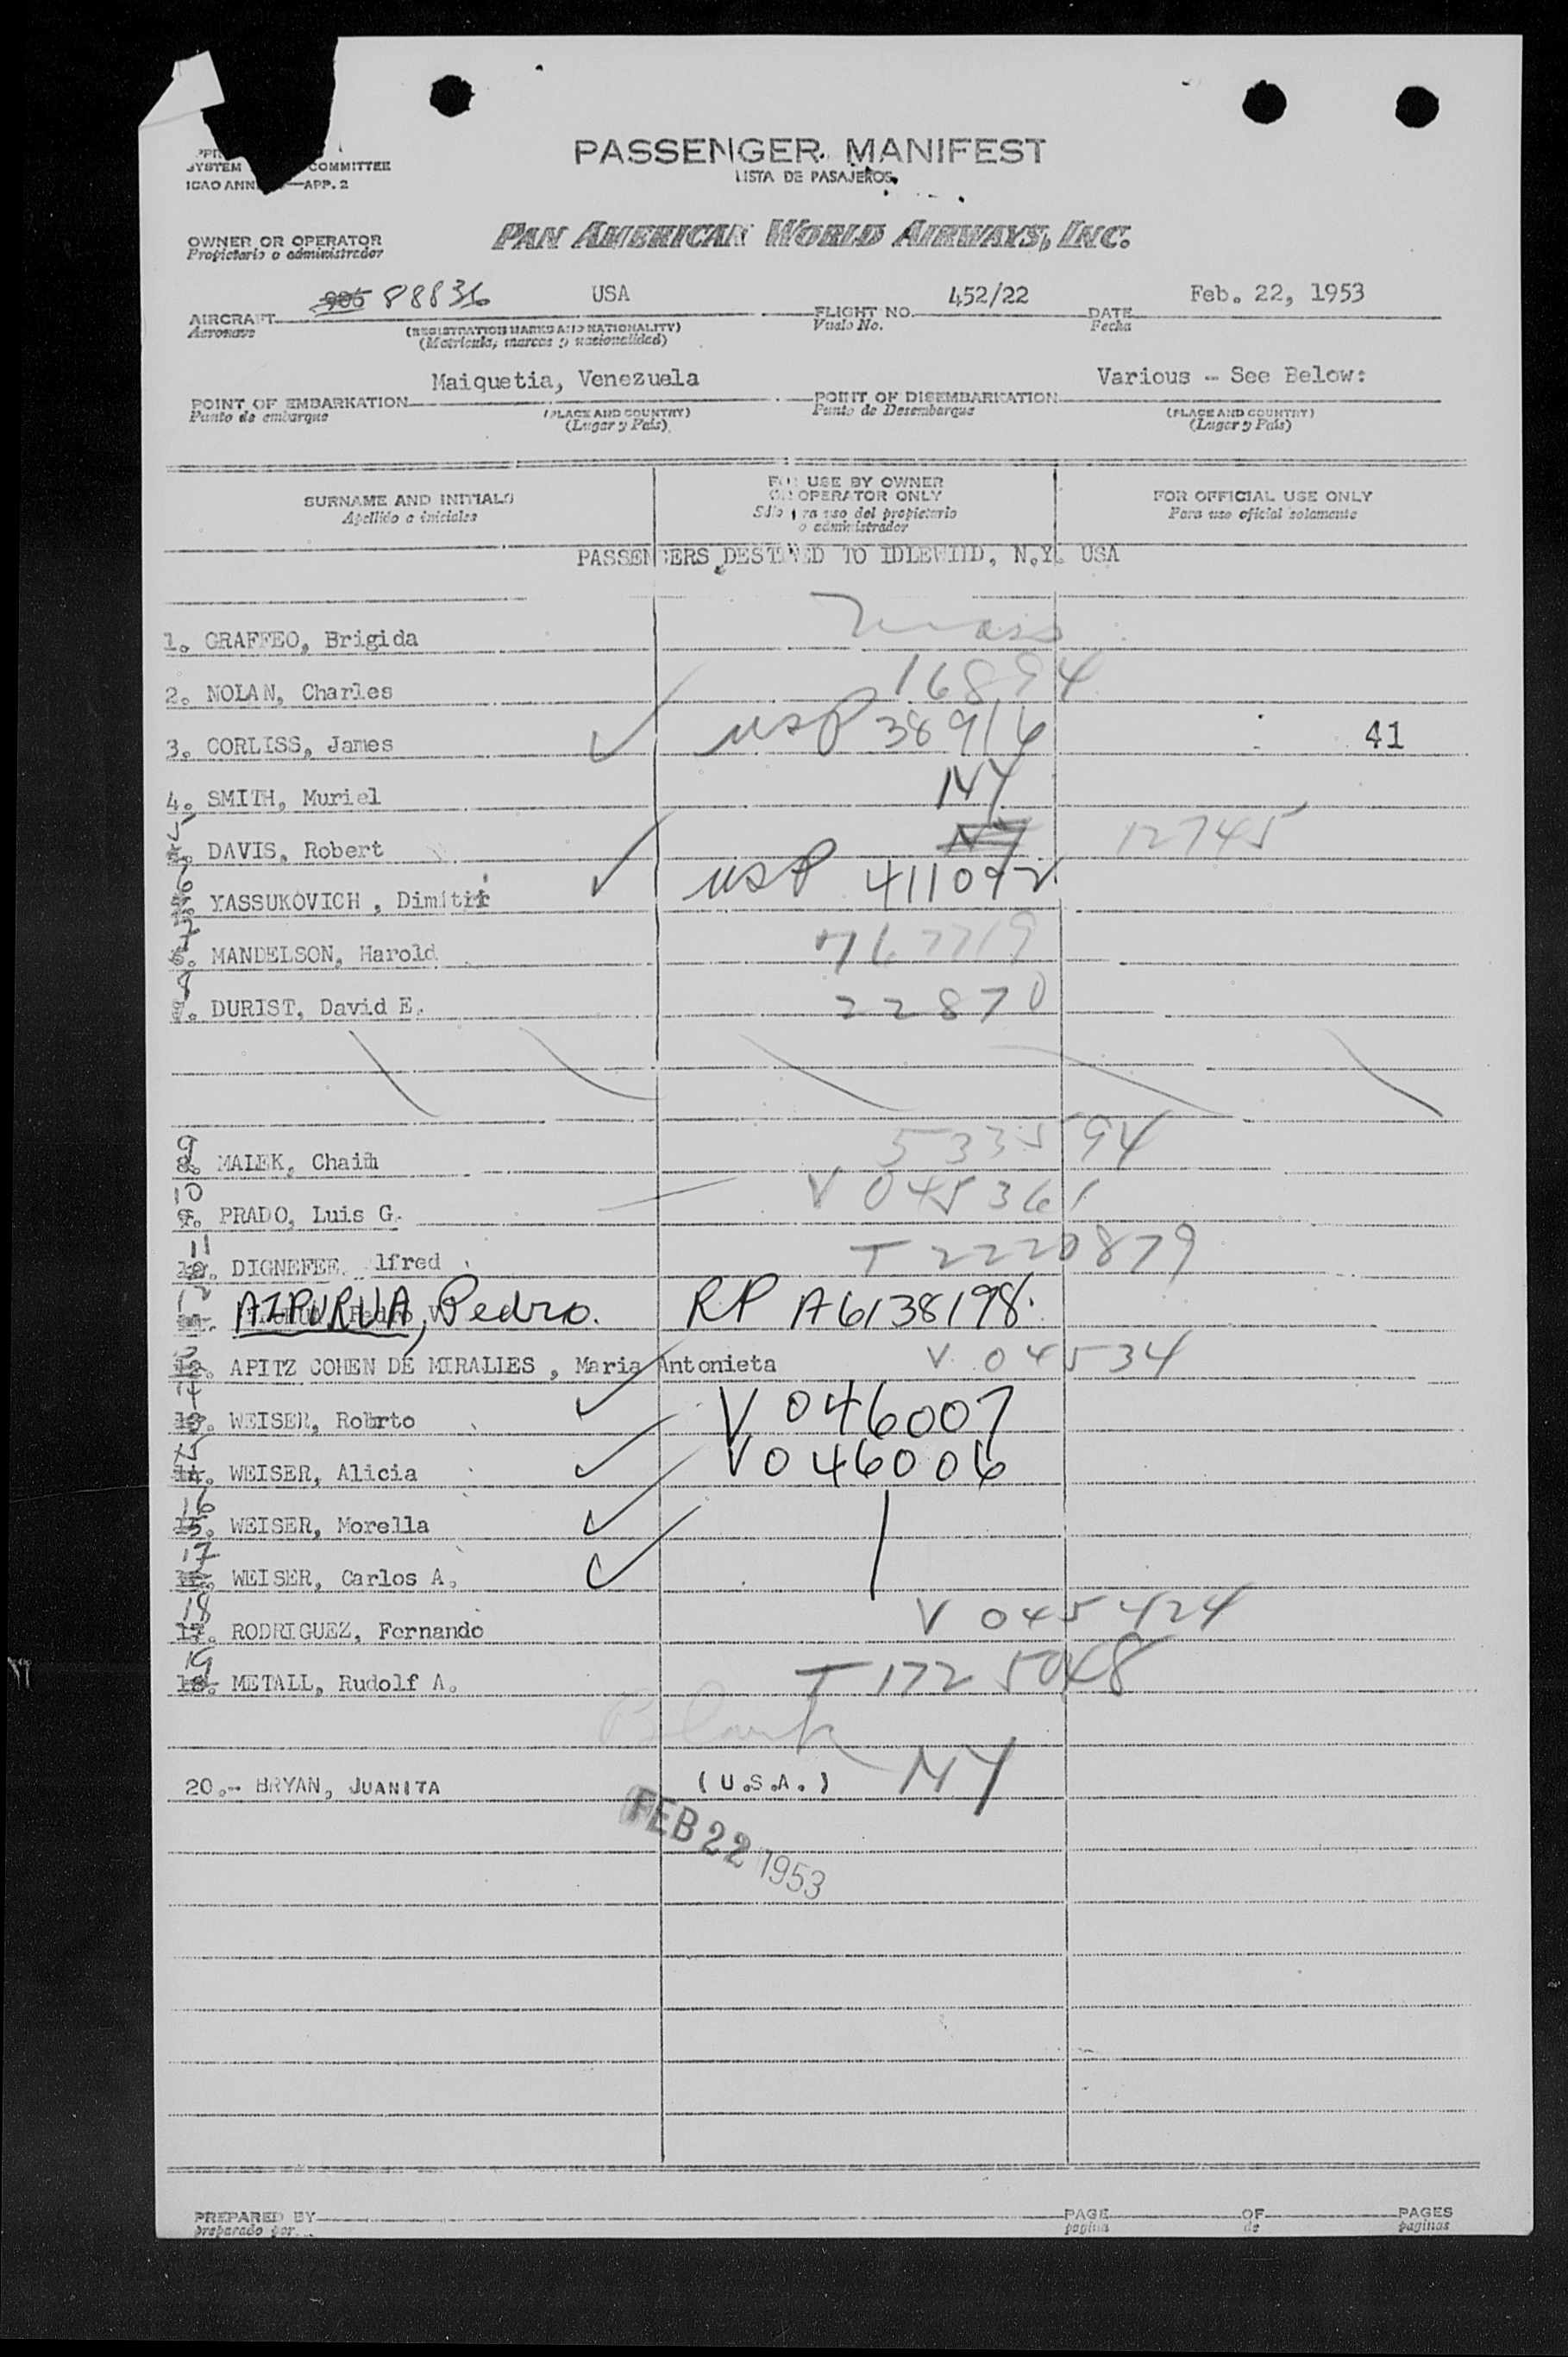 SYSTEM COMMITTEE
ICAO ANN —APP. 2
PASSENGER MANIFEST
LISTA DE PASAJEROS
OWNER OR OPERATOR
Propietario o administrador
PAN AMERICAN WORLD AIRWAYS, INC.
AIRCRAFT 88836 USA
Aeronave
(REGISTRATION MARKS AND NATIONALITY)
(Matricula, marcas y nacionalidad)
FLIGHT NO. 452/22
Vuelo No.
DATE Feb. 22, 1953
Fecha
POINT OF EMBARKATION Maiquetia, Venezuela
Punto de embarque
(PLACE AND COUNTRY)
(Lugar y País)
POINT OF DISEMBARKATION Various - See Below:
Punto de Desembarque
(PLACE AND COUNTRY)
(Lugar y País)
SURNAME AND INITIALS
Apellido a iniciales
FOR USE BY OWNER
OR OPERATOR ONLY
Sólo para uso del propietario
o administrador
FOR OFFICIAL USE ONLY
Para uso oficial solamente
PASSENGERS DESTINED TO IDLEWILD, N.Y. USA
1. GRAFFEO, Brigida Mass
2. NOLAN, Charles 16894
3. CORLISS, James USP 38916 41
4. SMITH, Muriel
5. DAVIS, Robert NY 12745
6 YASSUKOVICH , Dimitri USP 411092
7 MANDELSON, Harold
8 DURIST, David E. 22870
9 MALEK, Chaim 533594
10 PRADO, Luis G. V 045361
11 DIGNEFEE, Alfred T 2220879
12 AZPURUA, Pedro. RP A6138198.
13 APITZ COHEN DE MIRALLES , Maria Antonieta V 04534
14 WEISER, Roberto V 046007
15 WEISER, Alicia V 046006
16 WEISER, Morella
17 WEISER, Carlos A.
18 RODRIGUEZ, Fernando V 045424
19 METALL, Rudolf A. T 1725048
Blank
20.- BRYAN, JUANITA (U.S.A.) NY
FEB 22 1953
PREPARED BY
preparado por
PAGE OF PAGES
pagina de paginas